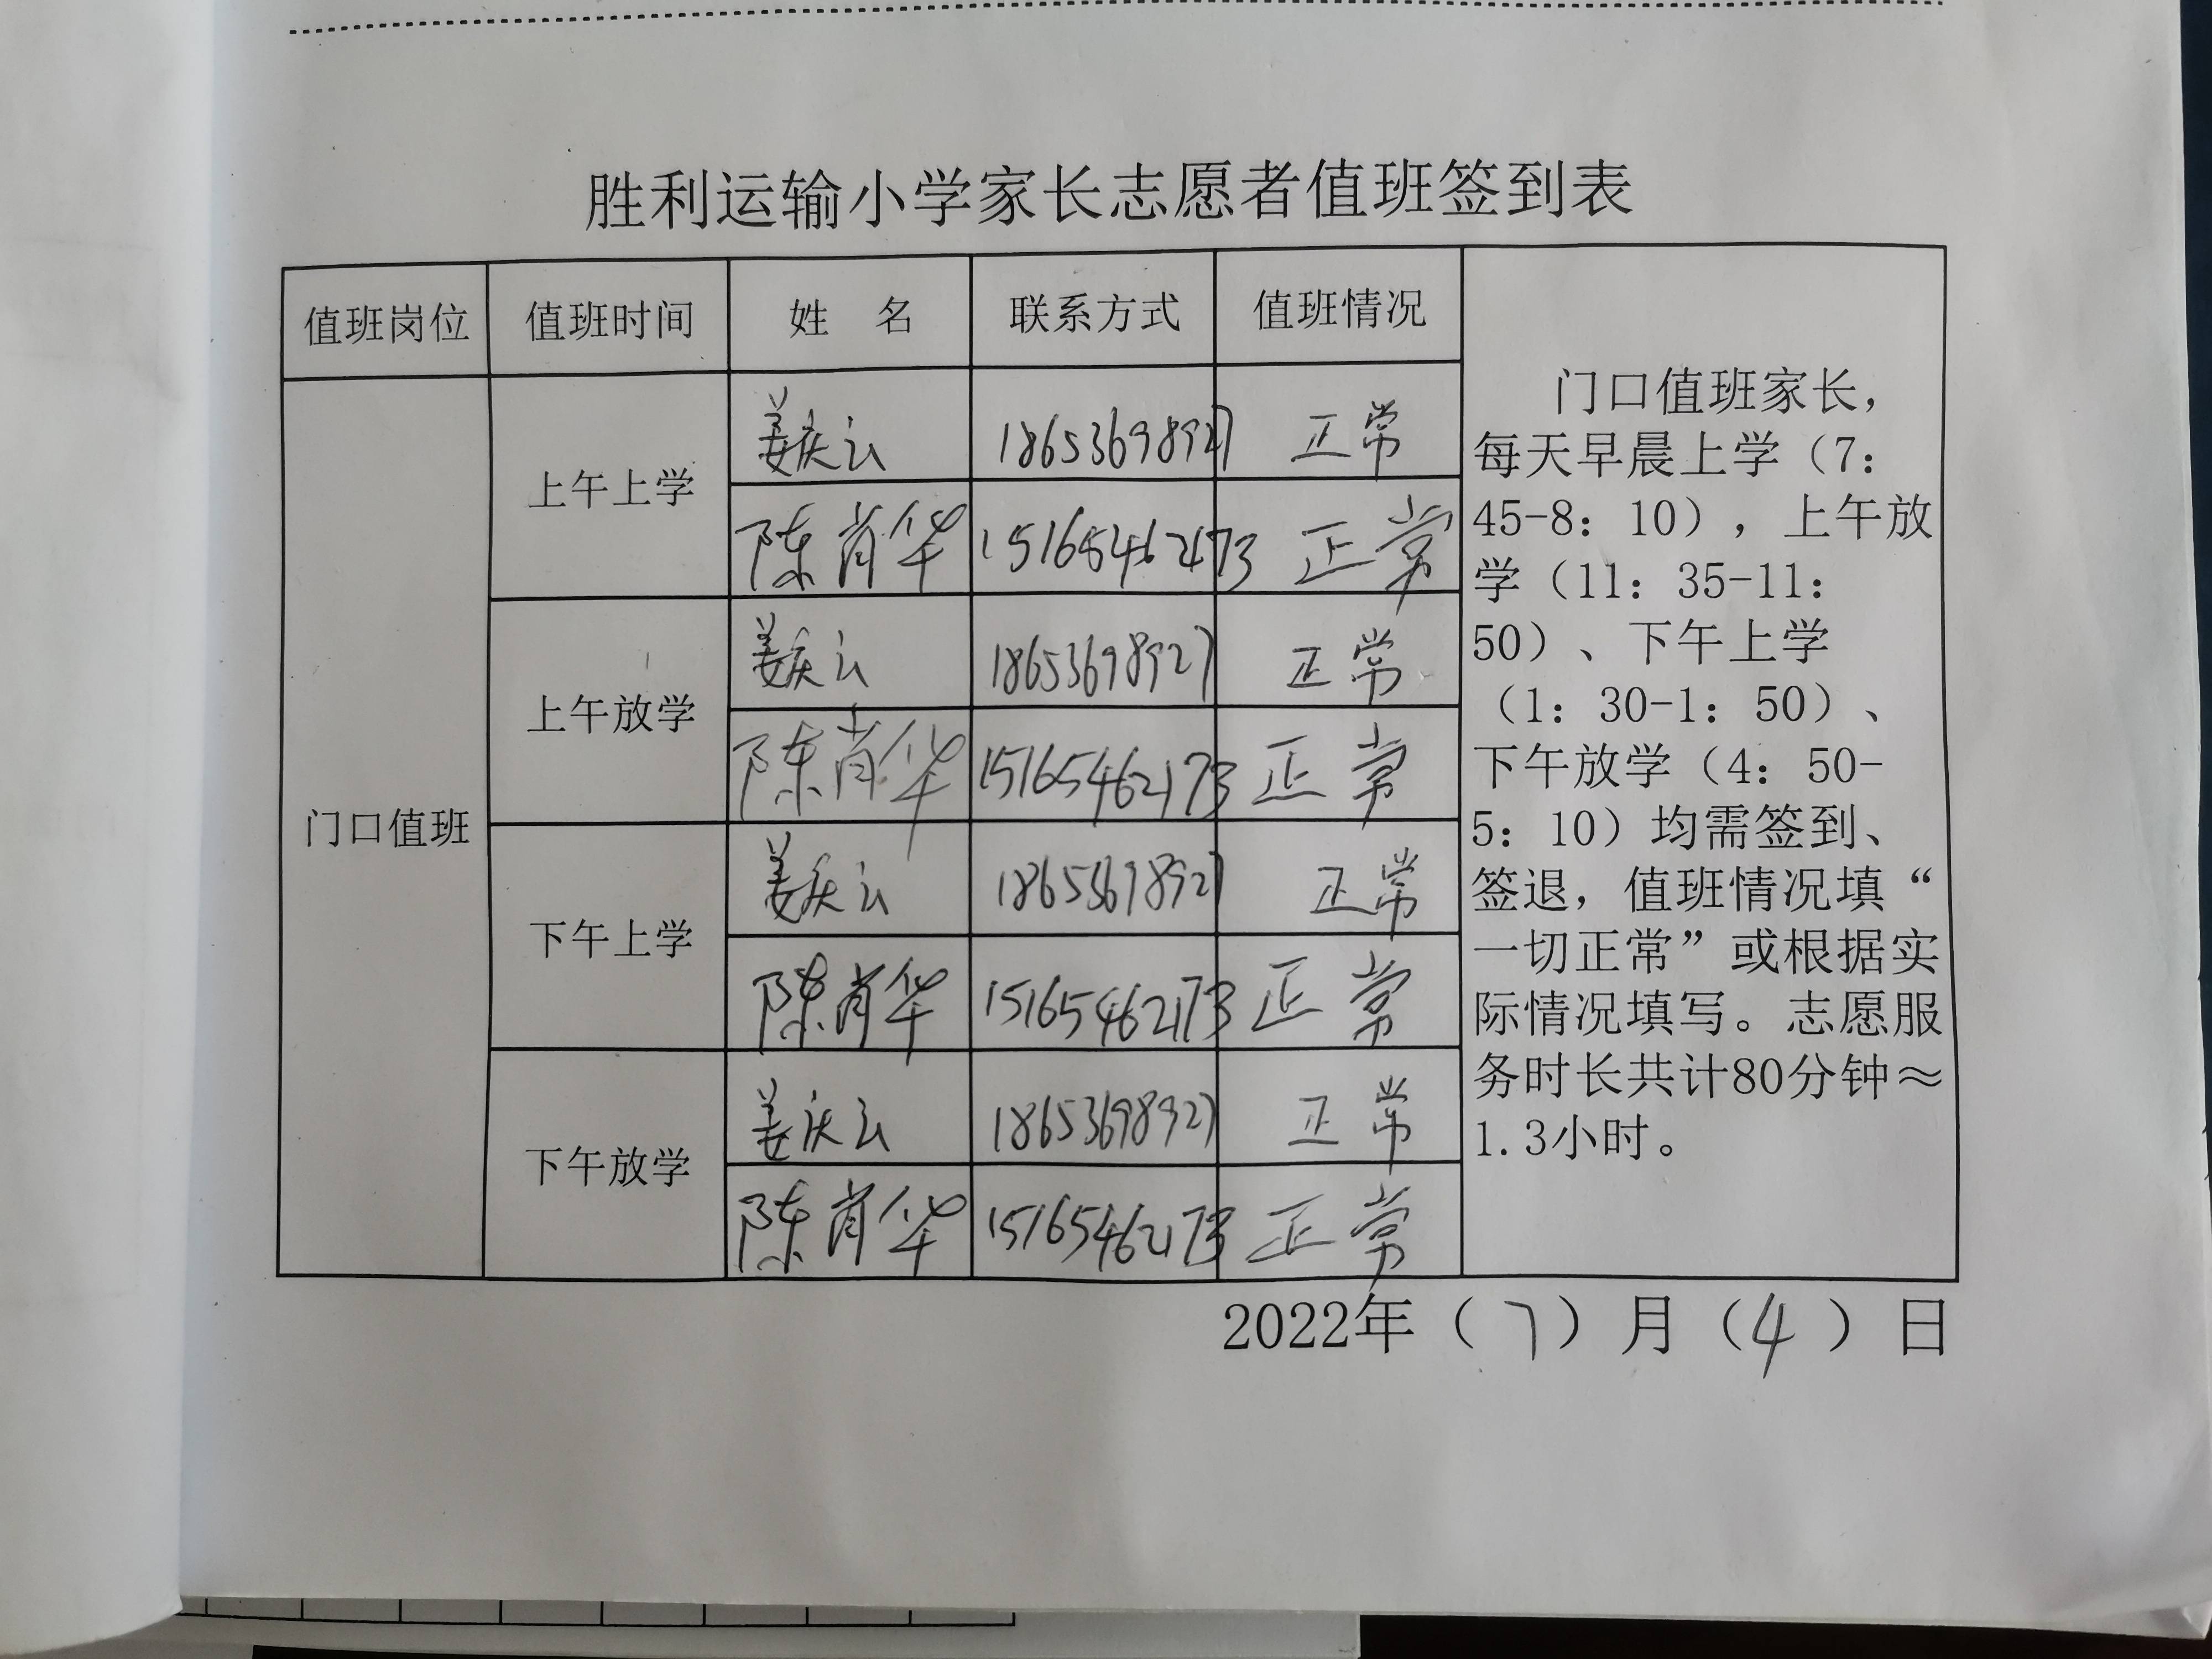 胜利运输小学家长志愿者值班签到表
值班岗位 值班时间 姓 名 联系方式 值班情况
门口值班
上午上学
姜庆云 18653698927 正常
陈肖华 15165462173 正常
上午放学
姜庆云 18653698927 正常
陈肖华 15165462173 正常
下午上学
姜庆云 18653698927 正常
陈肖华 15165462173 正常
下午放学
姜庆云 18653698927 正常
陈肖华 15165462173 正常
门口值班家长，
每天早晨上学（7：
45-8：10），上午放
学（11：35-11：
50）、下午上学
（1：30-1：50）、
下午放学（4：50-
5：10）均需签到、
签退，值班情况填“
一切正常”或根据实
际情况填写。志愿服
务时长共计80分钟≈
1.3小时。
2022年（7）月（4）日